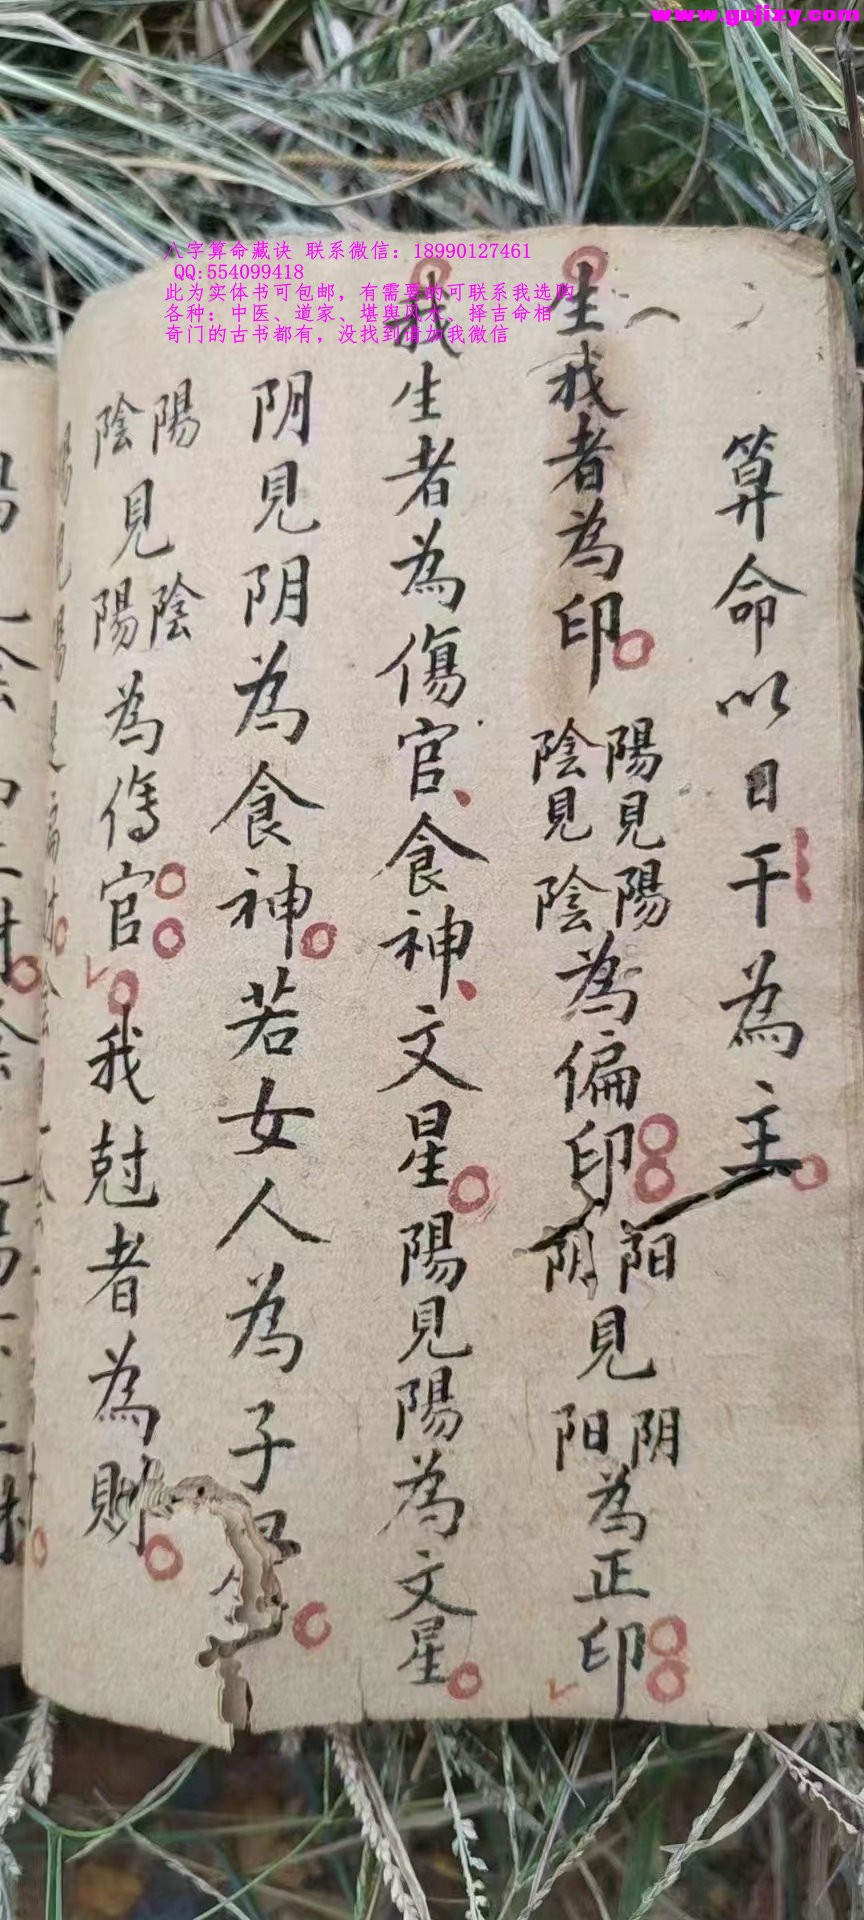 www.gujizy.com
八字算命藏诀 联系微信：18990127461
QQ:554099418
此为实体书可包邮，有需要的可联系我选购
各种：中医、道家、堪舆风水、择吉命相
奇门的古书都有，没找到请加我微信
算命以日干為主
生我者為印陽見陽陰見陰為偏印阳阴見阴阳為正印
我生者為傷官、食神、文星陽見陽為文星
阴見阴為食神若女人為子
陽陰見陰陽為傷官我尅者為財